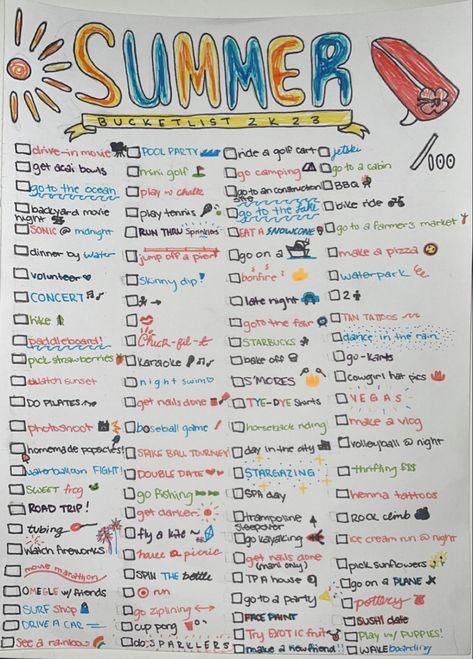 SUMMER
BUCKETLIST 2K23
/100
drive-in movie
get acai bowls
go to the ocean
backyard movie
night
SONIC @ midnight
dinner by water
volunteer
CONCERT
hike
paddleboard!
pick strawberries
watch sunset
DO PILATES
photoshoot
homemade popsicles!
waterballoon FIGHT!
SWEET frog
ROAD TRIP!
tubing
watch fireworks
movie marathon
OMEGLE w/ friends
SURF shop
DRIVE A CAR
see a rainbow
POOL PARTY
mini golf
play w/ chalk
play tennis
RUN THRU sprinklers
jump off a pier
skinny dip!
Chick-fil-t
karaoke
night swim
get nails done
baseball game!
SPIKE BALL TOURNEY
DOUBLE DATE
go fishing
get darker
fly a kite
have a picnic
SPIN THE bottle
run
go ziplining
cup pong
do SPARKLERS
ride a golf cart
go camping
go to an construction
site
go to the lake
EAT A SNOWCONE
go on a
bonfire!
late night
go to the fair
STARBUCKS
bake off
S'MORES
TYE-DYE shirts
horseback riding
day in the city
STARGAZING
SPA day
trampoline
sleepover
go kayaking
get nails done
(mani only)
TP A house
go to a party
FACE PAINT
Try EXOTIC fruit
make a new friend!!
jetski
go to a cabin
BBQ
bike ride
go to a farmer's market
make a pizza
waterpark
2
TAN TATTOOS
dance in the rain
go-karts
cowgirl hat pics
VEGAS
make a vlog
volleyball @ night
thrifting $$$
henna tattoos
ROCK climb
ice cream run @ night
pick sunflowers
go on a PLANE
pottery
SUSHI date
Play w/ PUPPIES!
WAKEboarding